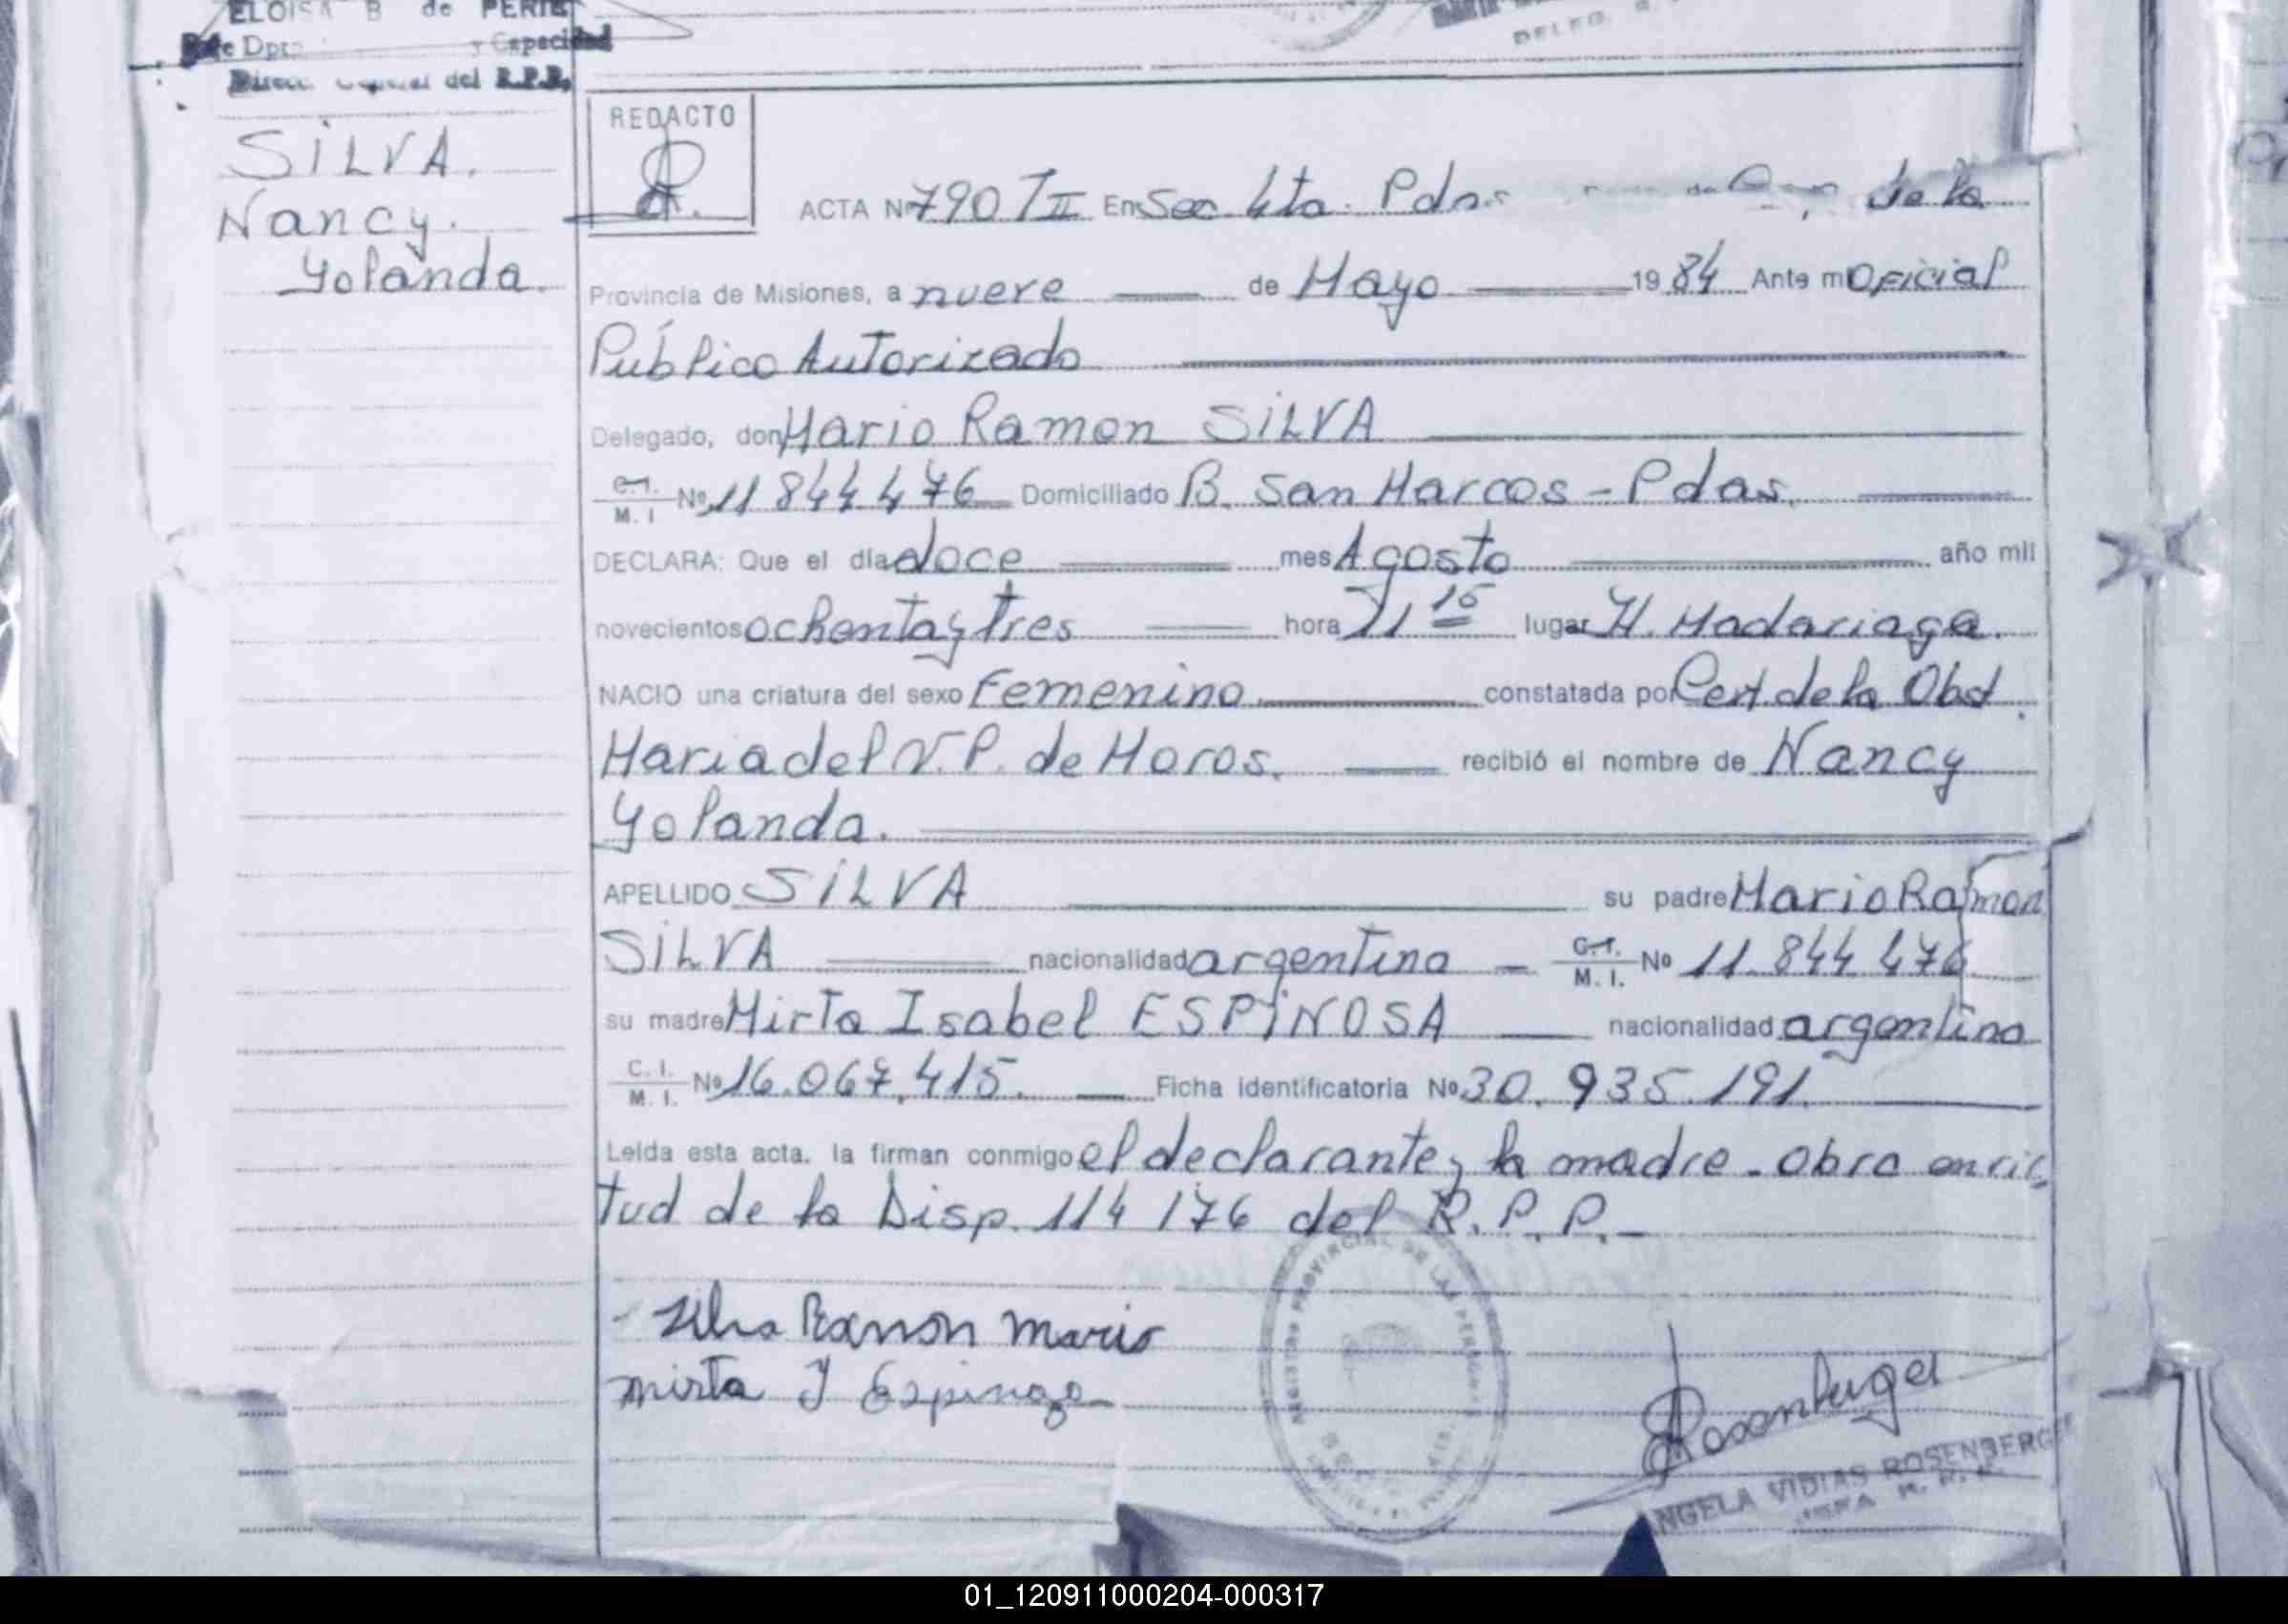 ELOISA B de PERIE
e Dpto y Capacidad
del R.P.P.
SILVA.
Nancy.
Yolanda.
REDACTO
ACTA Nº 790 TII En Sec 4ta. Pdas de la
Provincia de Misiones, a nueve de Mayo 1984 Ante mi Oficial
Público Autorizado
Delegado, don Mario Ramon SILVA
C.I. M. I Nº 11 844 476 Domiciliado B. San Marcos - Pdas.
DECLARA: Que el día doce mes Agosto año mil
novecientos ochenta y tres hora 21 15 lugar H. Madariaga.
NACIO una criatura del sexo Femenino. constatada por Cert. de la Obst.
Maria del V. P. de Moros. recibió el nombre de Nancy
Yolanda.
APELLIDO SILVA su padre Mario Ramon
SILVA nacionalidad argentina C.I. M. I. Nº 11.844 476
su madre Mirta Isabel ESPINOSA nacionalidad argentina
C. I. M. I. Nº 16.067.415. Ficha identificatoria Nº 30.935.191.
Leida esta acta. la firman conmigo el declarante y la madre - obra en vir
tud de la Disp. 114 176 del R.P.P.-
Silva Ramon Mario
Mirta I Espinoza
PROVINCIAL DE LAS PERSONAS
Rosenberger
ANGELA VIDIAS ROSENBERGER
01_120911000204-000317